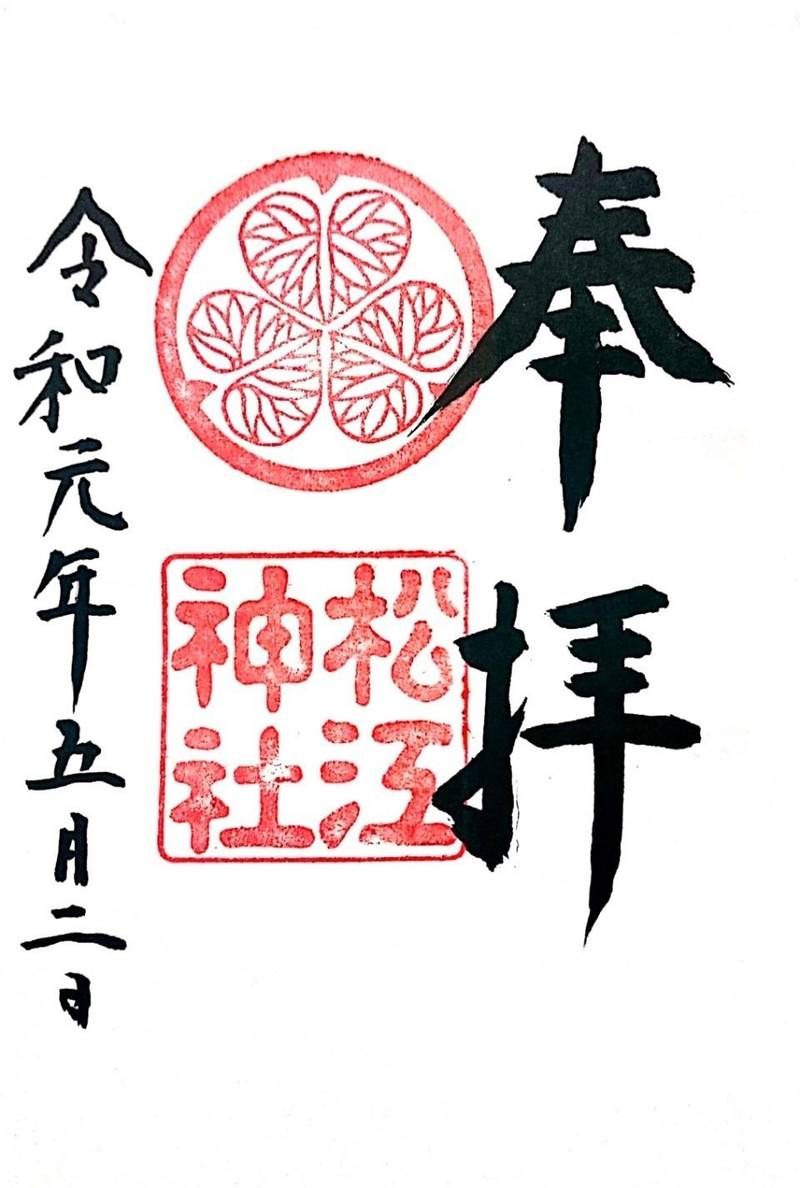 奉拝
松江
神社
令和元年五月二日